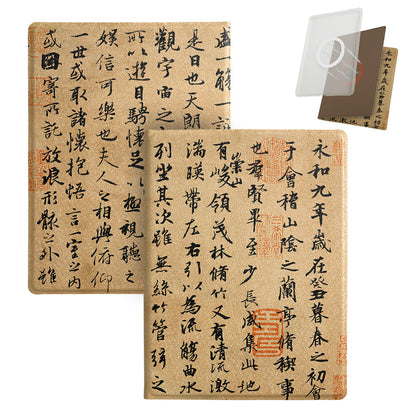 永和九年歲在癸丑暮春之初會
于會稽山陰之蘭亭脩稧事
也羣賢畢至少長咸集此地
有崇山峻領茂林脩竹又有清流激
湍暎帶左右引以為流觴曲水
列坐其次雖無絲竹管弦之
盛一觴一
是日也天朗
觀宇宙之
所以遊目騁懷足以極視聽之
娛信可樂也夫人之相與俯仰
一世或取諸懷抱悟言一室之內
或因寄所託放浪形骸之外雖
永和九年歲在癸丑暮春之初